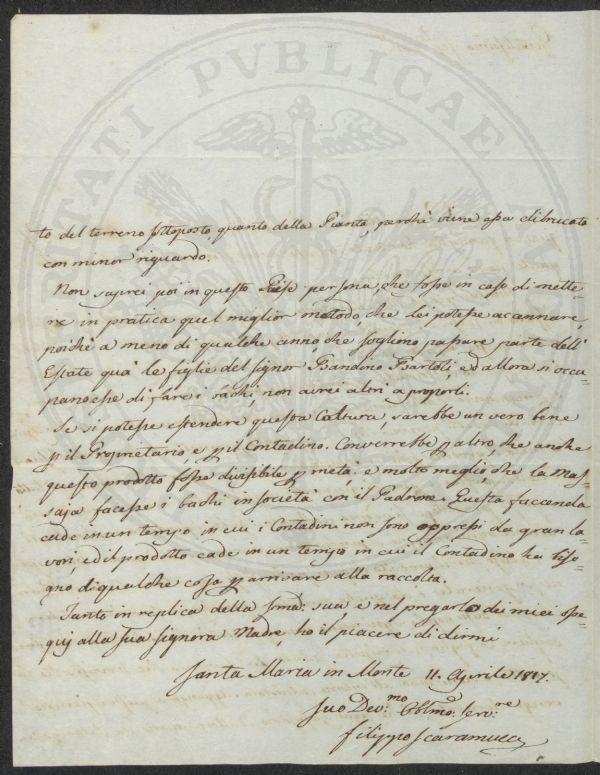 TATI PVBLICAE
to del terreno sottoposto, quanto della Pianta, perchè viene essa dibrucata
con minor riguardo.
Non saprei poi in questo Paese persona, che fosse in caso di mette=
re in pratica quel miglior metodo, che lei potesse accennare,
poichè a meno di qualche anno che sogliono passare parte dell'
Estate quà le figlie del signor Bandino Bartoli, ed allora si occu=
pano esse di fare i bachi, non avrei altri a proporli.
Se si potesse estendere questa Coltura, sarebbe un vero bene
p il Proprietario, e p il Contadino. Converrebbe p altro, che anche
questo prodotto fosse divisibile p metà: e molto meglio, che la Mas=
saja facesse i bachi in società con il Padrone. Questa faccenda
cade in un tempo in cui i Contadini non sono oppressi da gran la=
vori, ed il prodotto cade in un tempo in cui il Contadino ha biso=
gno di qualche cosa p arrivare alla raccolta.
Tanto in replica della sua, e nel pregarlo dei miei osse=
quj alla sua signora Madre, ho il piacere di dirmi
Santa Maria in Monte 11. Aprile 1817.
Suo Dev:mo Obblmo: Serv:re
Filippo Scaramucci